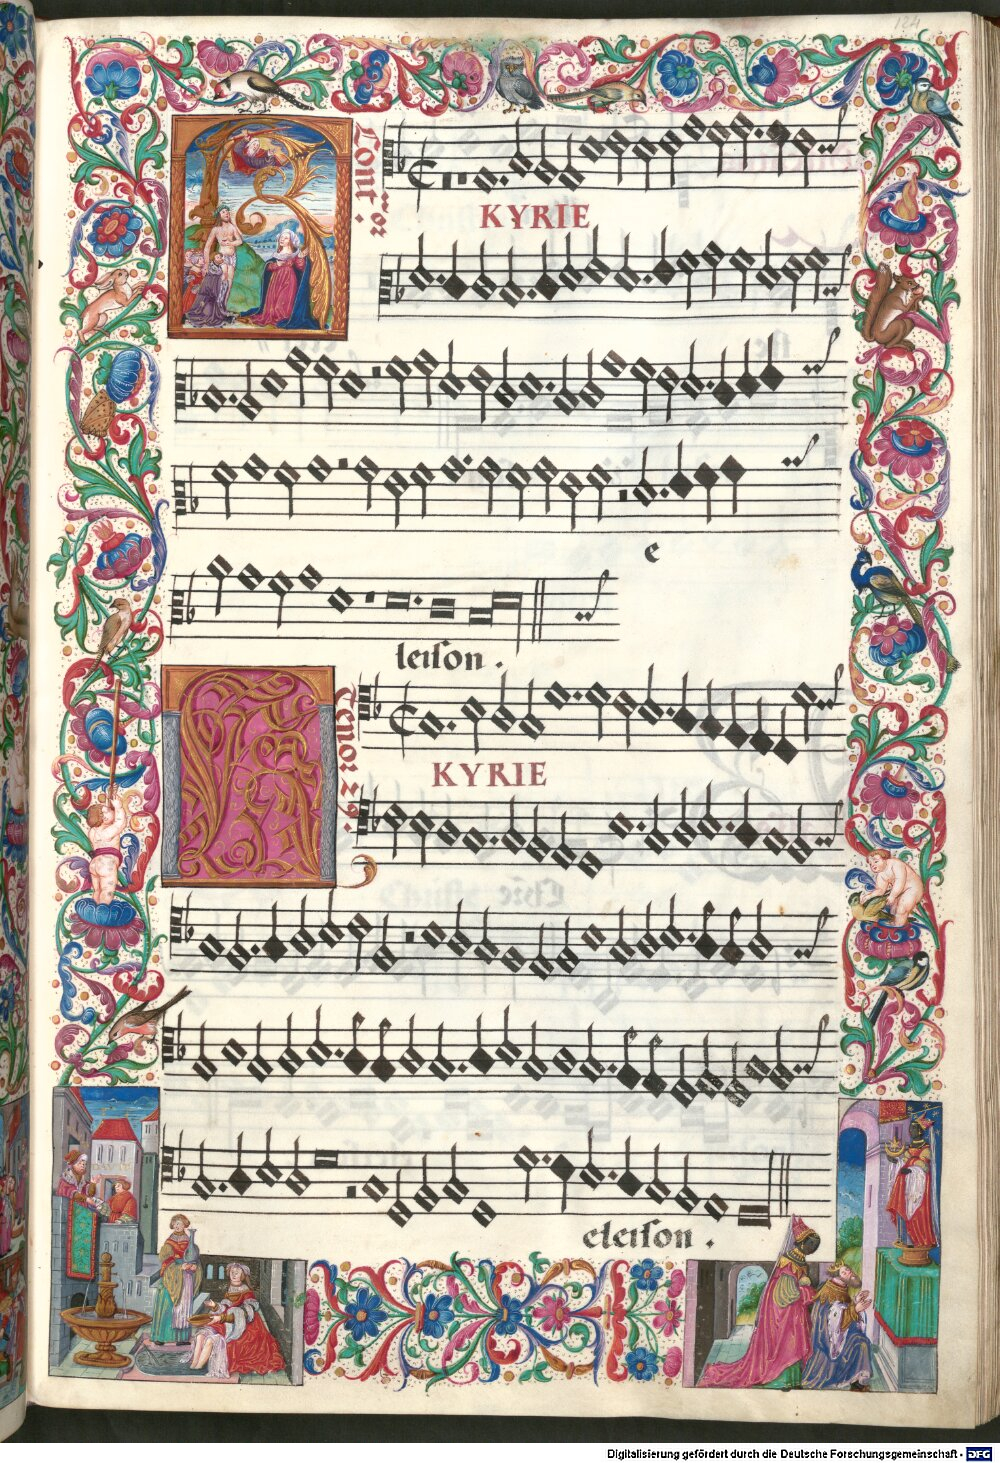 124
Cont^ra
KYRIE
e
leison .
Tenor 2^us.
KYRIE
eleison .
Digitalisierung gefördert durch die Deutsche Forschungsgemeinschaft - DFG